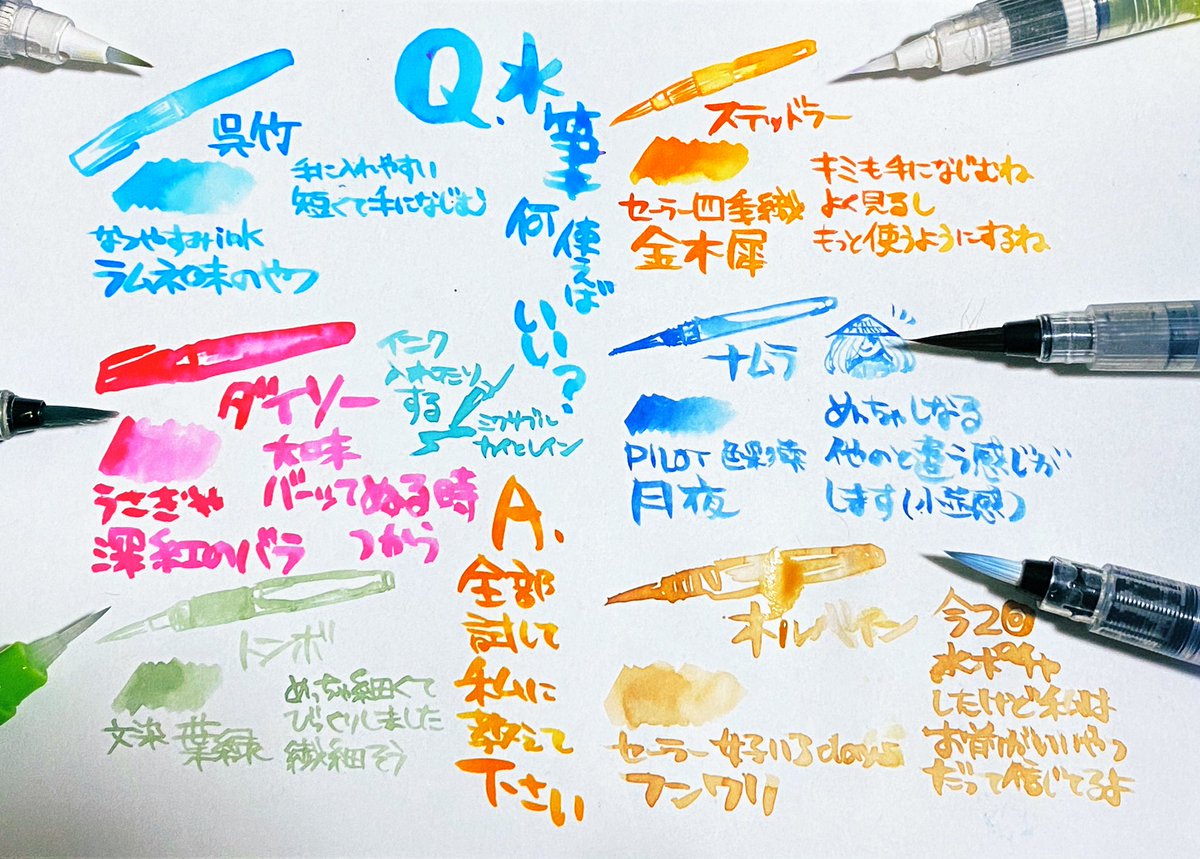 Q.水筆
何使えば
いい？
呉竹
手に入れやすい
短くて手になじむ
なつやすみink
ラムネ味のやつ
ステッドラー
キミも手になじむね
よく見るし
もっと使うようにするね
セーラー四季織
金木犀
ダイソー
大口味
バーッてぬる時
つかう
うさぎや
深紅のバラ
インク
入れたリン
する
ミクサブル
カイとレイン
ナムラ
めっちゃしなる
他のと違う感じが
します(小並感)
PILOT 色彩雫
月夜
A.
全部
試して
私に
教えて
下さい
トンボ
めっちゃ細くて
びっくりしました
繊細そう
文染 葉緑
ホルベイン
今2回
水ポチャ
したけど私は
お前がいいやつ
だって信じてるよ
セーラー 好いろdays
フンワリ